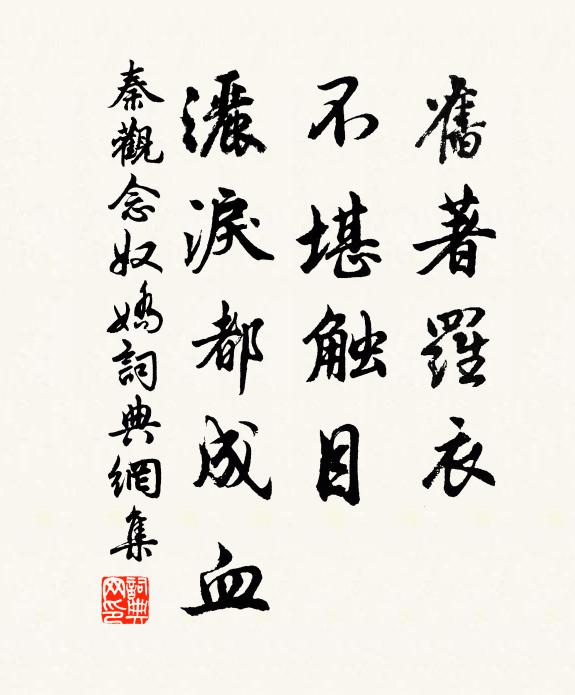 舊著羅衣
不堪触目
灑淚都成血
秦觀念奴嬌詞典網集
詞典
网印